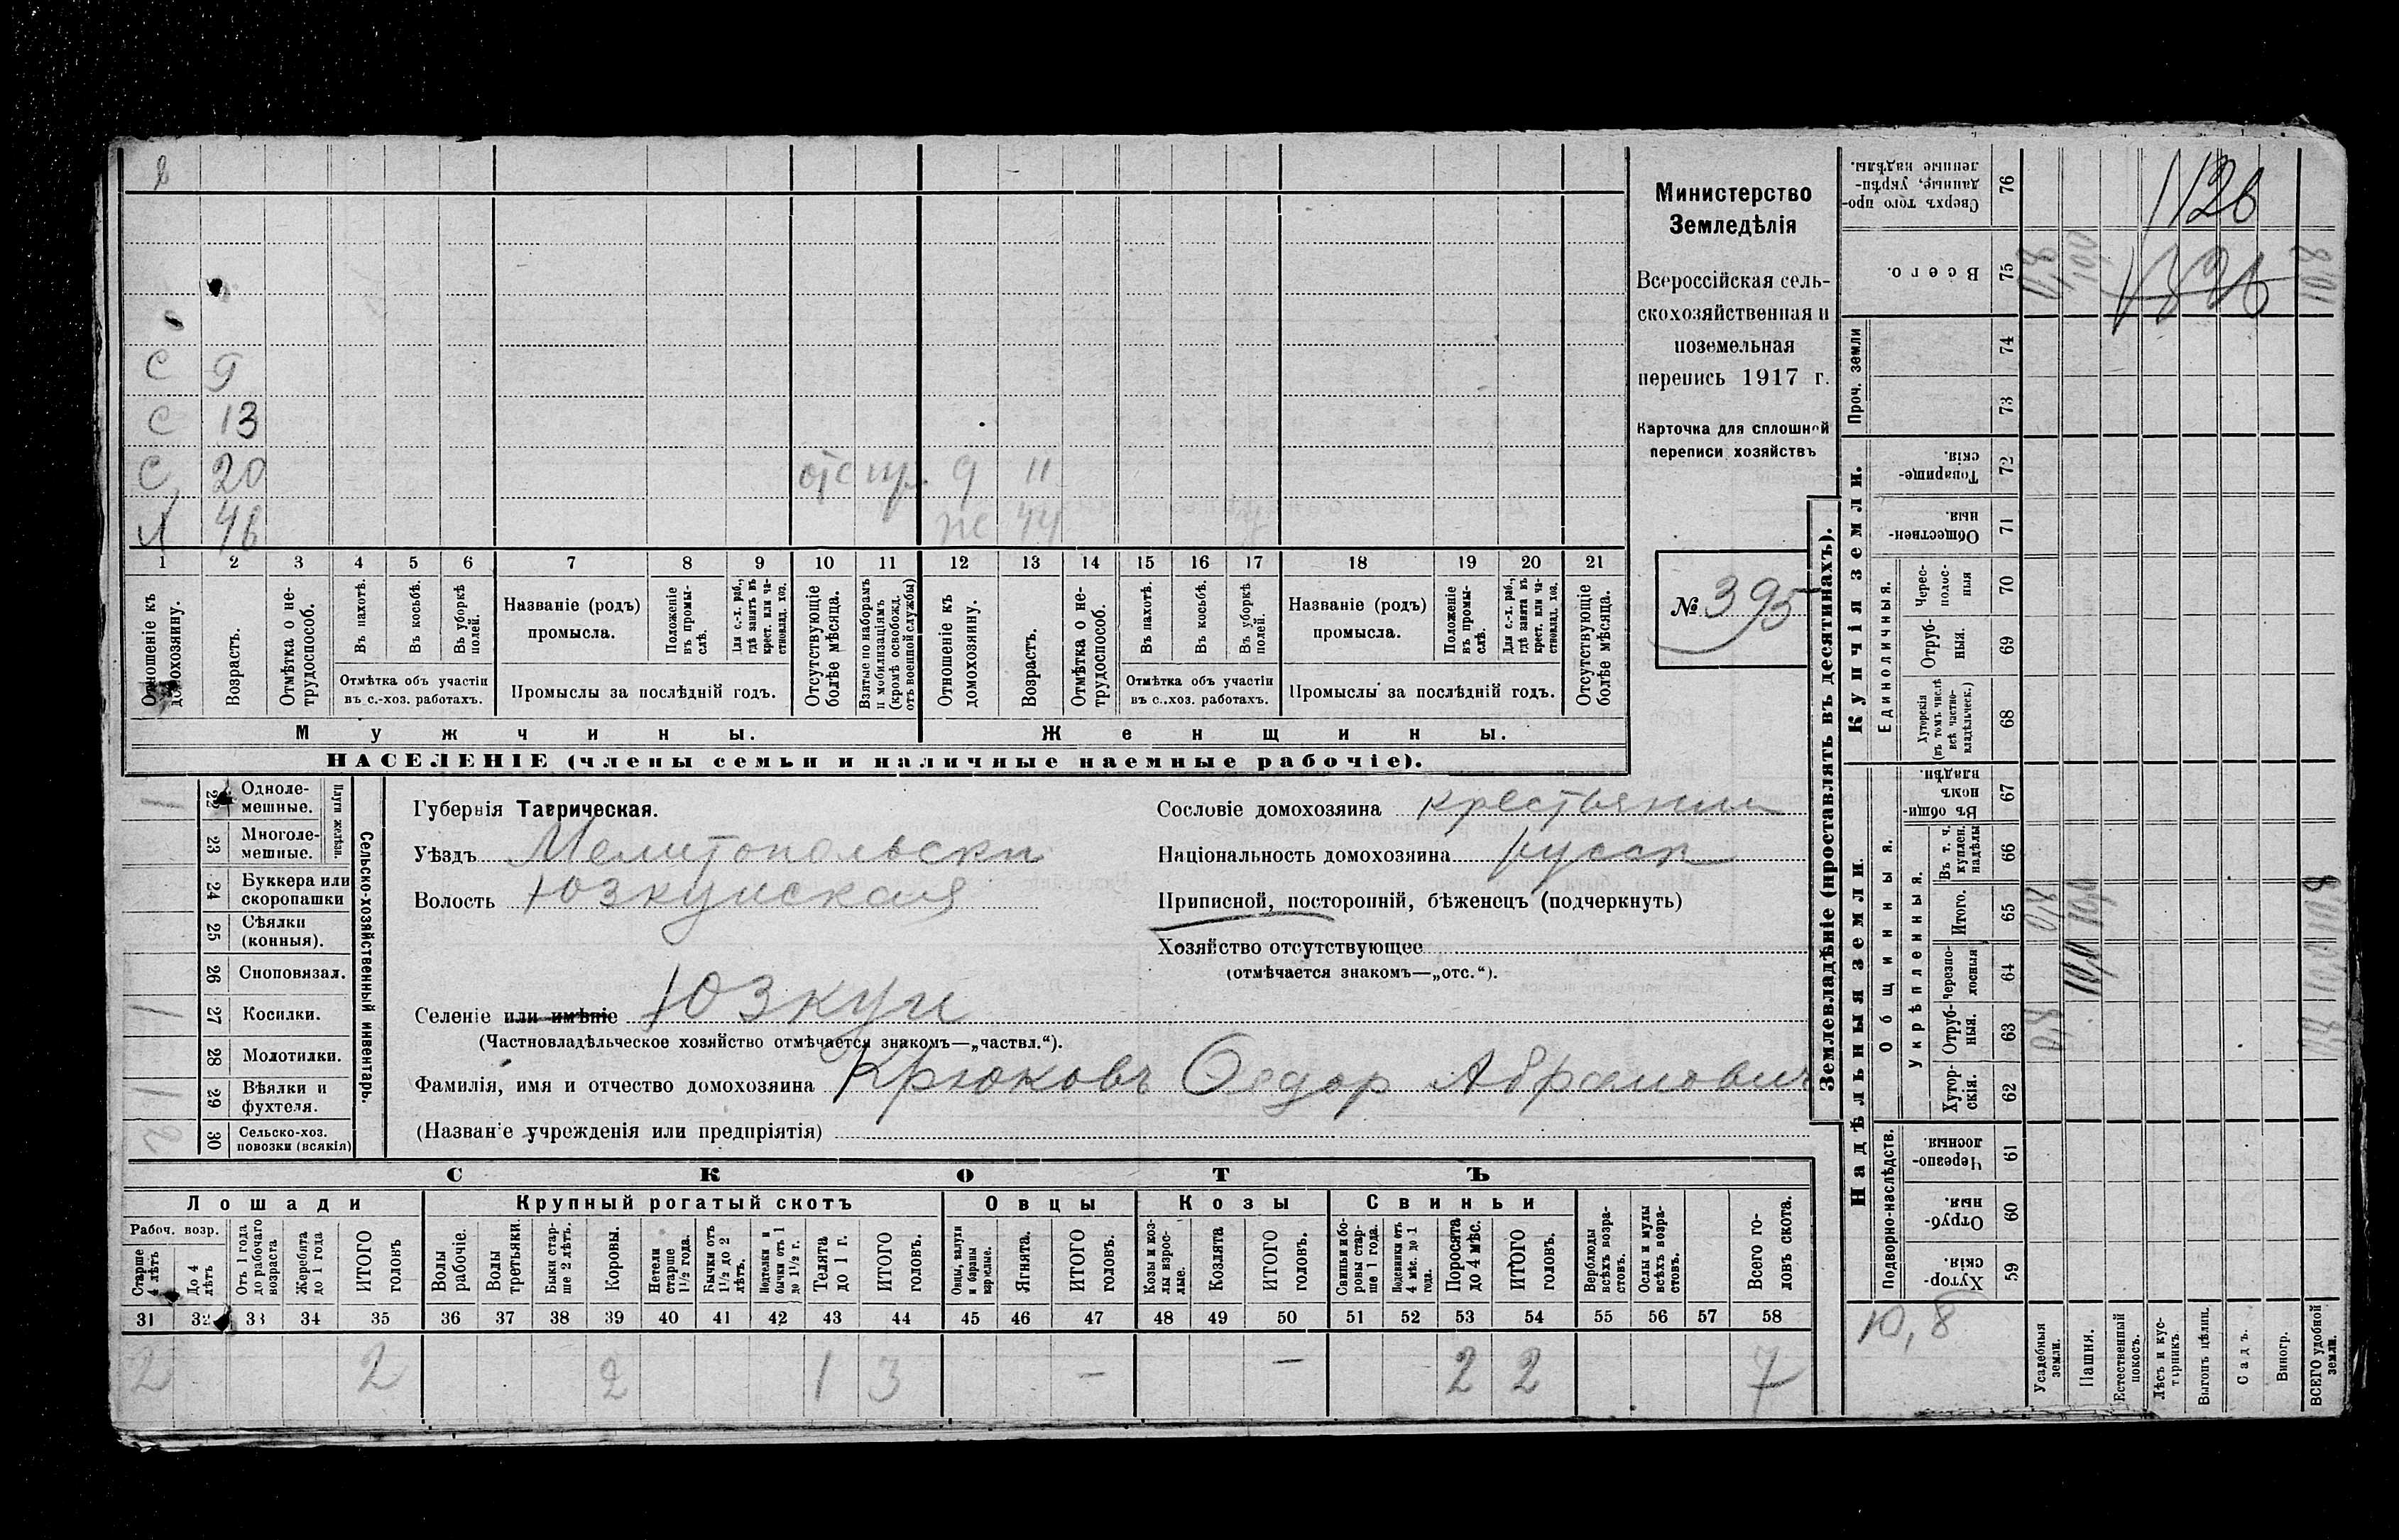 Министерство
Земледѣлія
Всероссійская сель-
скохозяйственная и
поземельная
перепись 1917 г.
Карточка для сплошной
переписи хозяйствъ
№ 395
С 9
С 13
С 20 отс 9 11
46 44
1 2 3 4 5 6 7 8 9 10 11 12 13 14 15 16 17 18 19 20 21
Отношеніе къ домохозяину.
Возрастъ.
Отмѣтка о не-трудоспособ.
Въ пахотѣ.
Въ косьбѣ.
Въ уборкѣ полей.
Отмѣтка объ участіи въ с.-хоз. работахъ.
Названіе (родъ) промысла.
Положеніе въ промы-слѣ.
Для с.-х. раб., гдѣ занятъ въ крест. или ча-стновлад. хоз.
Промыслы за послѣдній годъ.
Отсутствующіе болѣе мѣсяца.
Взятые по наборамъ и мобилизаціямъ (кромѣ освобожд. отъ военной службы)
Отношеніе къ домохозяину.
Возрастъ.
Отмѣтка о не-трудоспособ.
Въ пахотѣ.
Въ косьбѣ.
Въ уборкѣ полей.
Отмѣтка объ участіи въ с.-хоз. работахъ.
Названіе (родъ) промысла.
Положеніе въ промы-слѣ.
Для с.-х. раб., гдѣ занята въ крест. или ча-стновлад. хоз.
Промыслы за послѣдній годъ.
Отсутствующіе болѣе мѣсяца.
Мужчины. Женщины.
НАСЕЛЕНІЕ (члены семьи и наличные наемные рабочіе).
Сельско-хозяйственный инвентарь.
Плуги желѣзн.
1 22 Одноле-мешные.
23 Многоле-мешные.
24 Буккера или скоропашки
25 Сѣялки (конныя).
26 Сноповязал.
1 27 Косилки.
28 Молотилки.
1 29 Вѣялки и фухтеля.
2 30 Сельско-хоз. повозки (всякія)
Губернія Таврическая.
Уѣздъ Мелитопольски
Волость Юзкуйская
Селеніе или имѣніе Юзкуи
(Частновладѣльческое хозяйство отмѣчается знакомъ—„частвл.“).
Фамилія, имя и отчество домохозяина Крюковъ Ѳедор Абрамович
(Названіе учрежденія или предпріятія)
Сословіе домохозяина крестьянин
Національность домохозяина русск
Приписной, посторонній, бѣженецъ (подчеркнуть)
Хозяйство отсутствующее
(отмѣчается знакомъ—„отс.“).
СКОТЪ
Лошади Крупный рогатый скотъ Овцы Козы Свиньи
Рабоч. возр.
Старше 4 лѣтъ
До 4 лѣтъ
Отъ 1 года до рабочаго возраста
Жеребята до 1 года
ИТОГО головъ
Волы рабочіе.
Волы третьяки.
Быки стар-ше 2 лѣтъ.
Коровы.
Нетели старше 1½ года.
Бычки отъ 1½ до 2 лѣтъ.
Подтелки и бычки отъ 1 до 1½ г.
Телята до 1 г.
ИТОГО головъ.
Овцы, валухи и бараны взрослые.
Ягнята.
ИТОГО головъ.
Козы и коз-лы взрос-лые.
Козлята
ИТОГО головъ.
Свиньи и бо-ровы стар-ше 1 года.
Подсвинки отъ 4 мѣс. до 1 года.
Поросята до 4 мѣс.
ИТОГО головъ.
Верблюды всѣхъ возра-стовъ.
Ослы и мулы всѣхъ возра-стовъ.
Всего го-ловъ скота.
31 32 33 34 35 36 37 38 39 40 41 42 43 44 45 46 47 48 49 50 51 52 53 54 55 56 57 58
2 2 2 1 3 — — 2 2 7
Землевладѣніе (проставлять въ десятинахъ).
Купчія земли.
Надѣльныя земли.
Сверхъ того про-данные, укрѣп-ленные надѣлы. 76
Всего. 75 0,8 10,0 10,8
Проч. земли 74 73
Товарище-скія. 72
Обществен-ныя. 71
Единоличныя.
Черес-полос-ныя 70
Отруб-ныя. 69
Хуторскія (въ томъ числѣ всѣ частно-владѣльческ.) 68
Общинныя.
Въ общи-номъ владѣн. 67
Укрѣпленныя.
Въ т. ч. куплен. надѣлы 66
Итого. 65 0,8 10,0 10,8
Черезпо-лосныя 64 10,0 10,0
Отруб-ныя. 63 0,8 0,8
Хутор-скія. 62
Подворно-наслѣдств.
Черезпо-лосныя 61
Отруб-ныя. 60
Хутор-скія. 59
10,8
Усадебныя земли.
Пашня.
Естественный покосъ.
Лѣсъ и кус-тарникъ.
Выгонъ цѣлин.
Садъ.
Виногр.
ВСЕГО удобной земли.